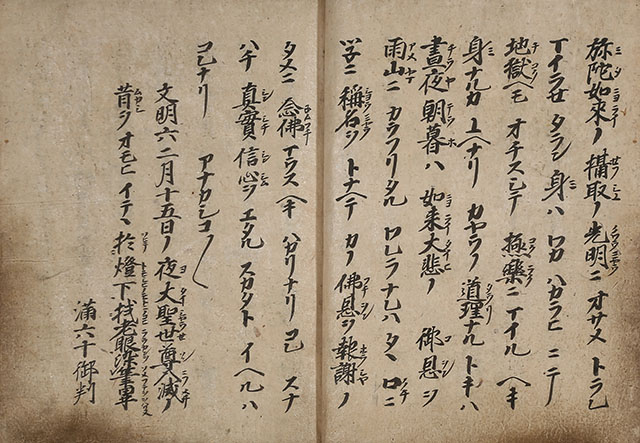 弥陀如来ノ攝取ノ光明ニオサメトラレ
マイラせタラン身ハワカハカラヒニテ
地獄ヘモオチスシテ極樂ニマイルヘキ
身ナルカユヘナリカヤウノ道理ナルトキハ
晝夜朝暮ハ如来大悲ノ御恩ヲ
雨山ニカウフリタルワレラナレハタヽ口ニ
ツ子ニ稱名ヲトナヘテカノ佛恩ヲ報謝ノ
タメニ念佛マウスヘキハカリナリコレスナ
ハチ真實信心ヲエタルスカタトイヘルハ
コレナリアナカシコ〳〵
文明六二月十五日ノ夜大聖世尊入滅ノ
昔ヲオモヒイテヽ於燈下拭老眼染筆畢
満六十御判